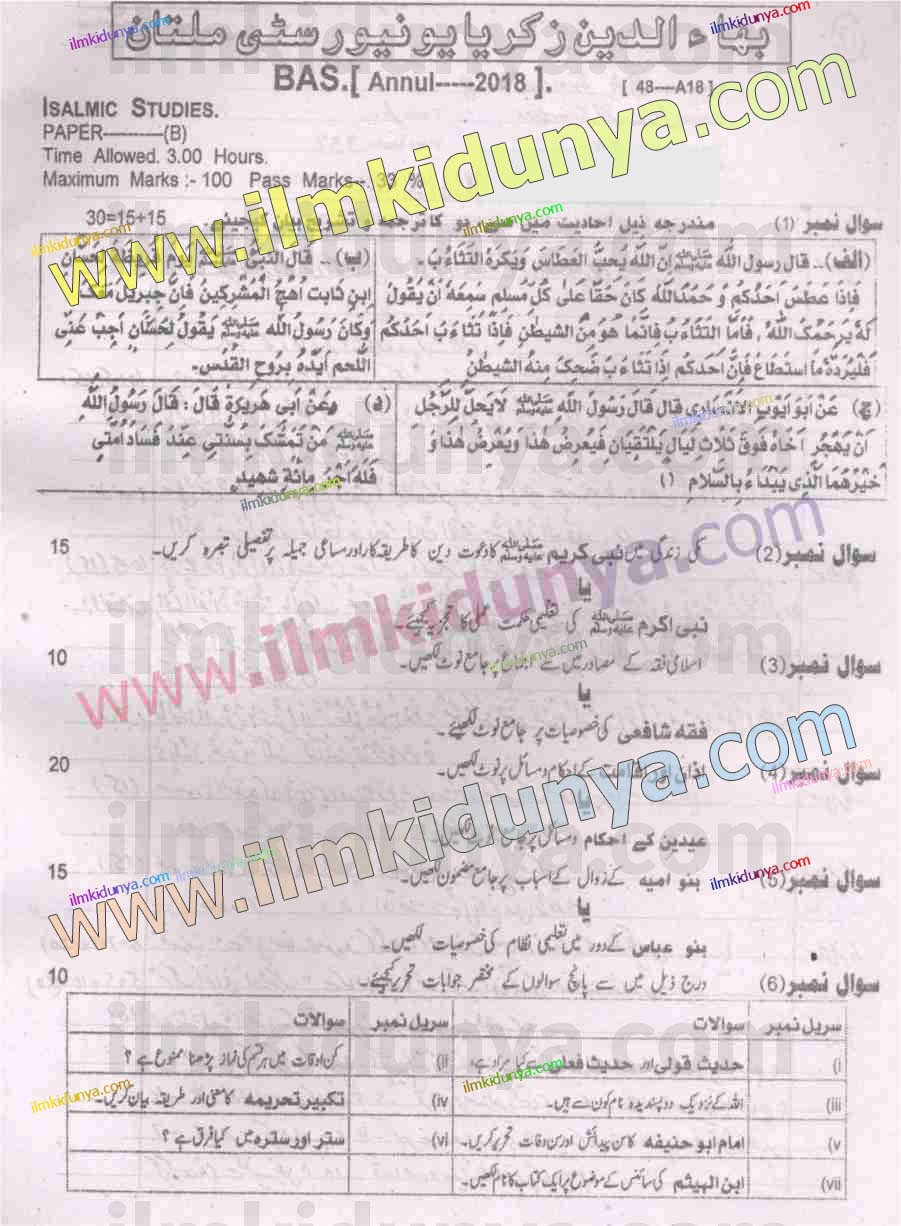 بهاء الدین زکریا یونیورسٹی ملتان
BAS.[ Annul-----2018 ].
[ 48----A18 ]
ISALMIC STUDIES.
PAPER----------(B)
Time Allowed. 3.00 Hours.
Maximum Marks :- 100 Pass Marks--. 33 %
سوال نمبر (1) مندرجہ ذیل احادیث میں سے دو کا ترجمہ و تشریح بیان کیجیئے۔ 30=15+15
(الف).. قال رسول اللہ ﷺ اِنَّ اللہَ یُحبُّ العطَاس وَیکرَہُ التثَاءُ بَ۔
فَاِذَا عطَسَ اَحَدُکُم وَ حَمدَاللہَ کَان حَقًا عَلیٰ کُلِّ مُسلم سمِعَهُ اَنْ یقُولَ
لَهُ یَرحَمُکَ اللّٰهُ, فَامَّا التَثاءَبَ فَاِنَّمَا هُوَ مِنَ الشیطٰنِ فَاِذَا تَثَاءَ بَ اَحَدُکُم
فَلیَرُدَّهُ مَا استَطَاعَ فَانَّ اَحدَکم اِذَا تَثَاءَ بَ ضَحِکَ مِنه الشیطانُ
(ب).. قال النبی
ابنِ ثابت اُهجُ الْمُشرکِینَ فَانَّ جبریلَ مَعَکَ
وَکَانَ رَسُولُ اللہ ﷺ یَقُولُ لِحَسَّانَ اَجِبْ عَنِّی
اللّٰهم اَیِّدْهُ بِروحِ القُدُس.
(ج) عَنْ ابو ایوبَ الانصاری قال قالَ رَسُولُ اللہِ ﷺ لَایَحِلُّ لِلرَّجُلِ
اَنْ یَهْجُرَ اَخَاهُ فَوقَ ثَلاثِ لیالٍ یَلْتَقِیَانِ فَیُعرِضُ هٰذَا ویَعرضُ هٰذَا وَ
خَیْرُهُمَا الَّذِی یَبْدَاءُ بِالسَّلَامِ
(د) وعَنْ اَبی هَرِیرَةَ قَالَ : قَالَ رَسُولُ اللّٰهِ
ﷺ مَنْ تَمَسَّکَ بِسُنَّتِی عِنْدَ فَسَادِ اُمَّتِی
فَلَهُ اَجْرُ مِائَةِ شَهِیدٍ
سوال نمبر (2) مکی زندگی میں نبی کریم ﷺ کا دعوت دین کا طریقہ کار اور مساعی جمیلہ پر تفصیلی تبصرہ کریں۔ 15
یا
نبی اکرم ﷺ کی تعلیمی حکمت عملی کا تجزیہ کیجیئے۔
سوال نمبر (3) اسلامی فقہ کے مصادر میں سے پر جامع نوٹ لکھیں۔ 10
یا
فقہ شافعی کی خصوصیات پر جامع نوٹ لکھیئے۔
سوال نمبر (4) اذان اور اقامت کے احکام و مسائل پر نوٹ لکھیں۔ 20
یا
عیدین کے احکام و مسائل پر جامع نوٹ لکھیں۔
سوال نمبر (5) بنو امیہ کے زوال کے اسباب پر جامع مضمون لکھیں۔ 15
یا
بنو عباس کے دور میں تعلیمی نظام کی خصوصیات لکھیں۔
سوال نمبر (6) درج ذیل میں سے پانچ سوالوں کے مختصر جوابات تحریر کیجیئے۔ 10
سریل نمبر سوالات سریل نمبر سوالات
(i حدیث قولی اور حدیث فعلی سے کیا مراد ہے،
(ii کن اوقات میں ہر قسم کی نماز پڑھنا ممنوع ہے ؟
(iii اللہ کے نزدیک دو پسندیدہ نام کون سے ہیں۔
(iv تکبیر تحریمہ کا معنی اور طریقہ بیان کریں۔
(v امام ابو حنیفہ کا سن پیدائش اور سن وفات تحریر کریں۔
(vi ستر اور سترہ میں کیا فرق ہے ؟
(vii ابن الہیثم کی سائنس کے موضوع پر ایک کتاب کا نام لکھیں۔
www.ilmkidunya.com
www.ilmkidunya.com
www.ilmkidunya.com
ilmkidunya.com
ilmkidunya.com
ilmkidunya.com
ilmkidunya.com
ilmkidunya.com
ilmkidunya.com
ilmkidunya.com
ilmkidunya.com
ilmkidunya.com
ilmkidunya.com
ilmkidunya.com
ilmkidunya.com
ilmkidunya.com